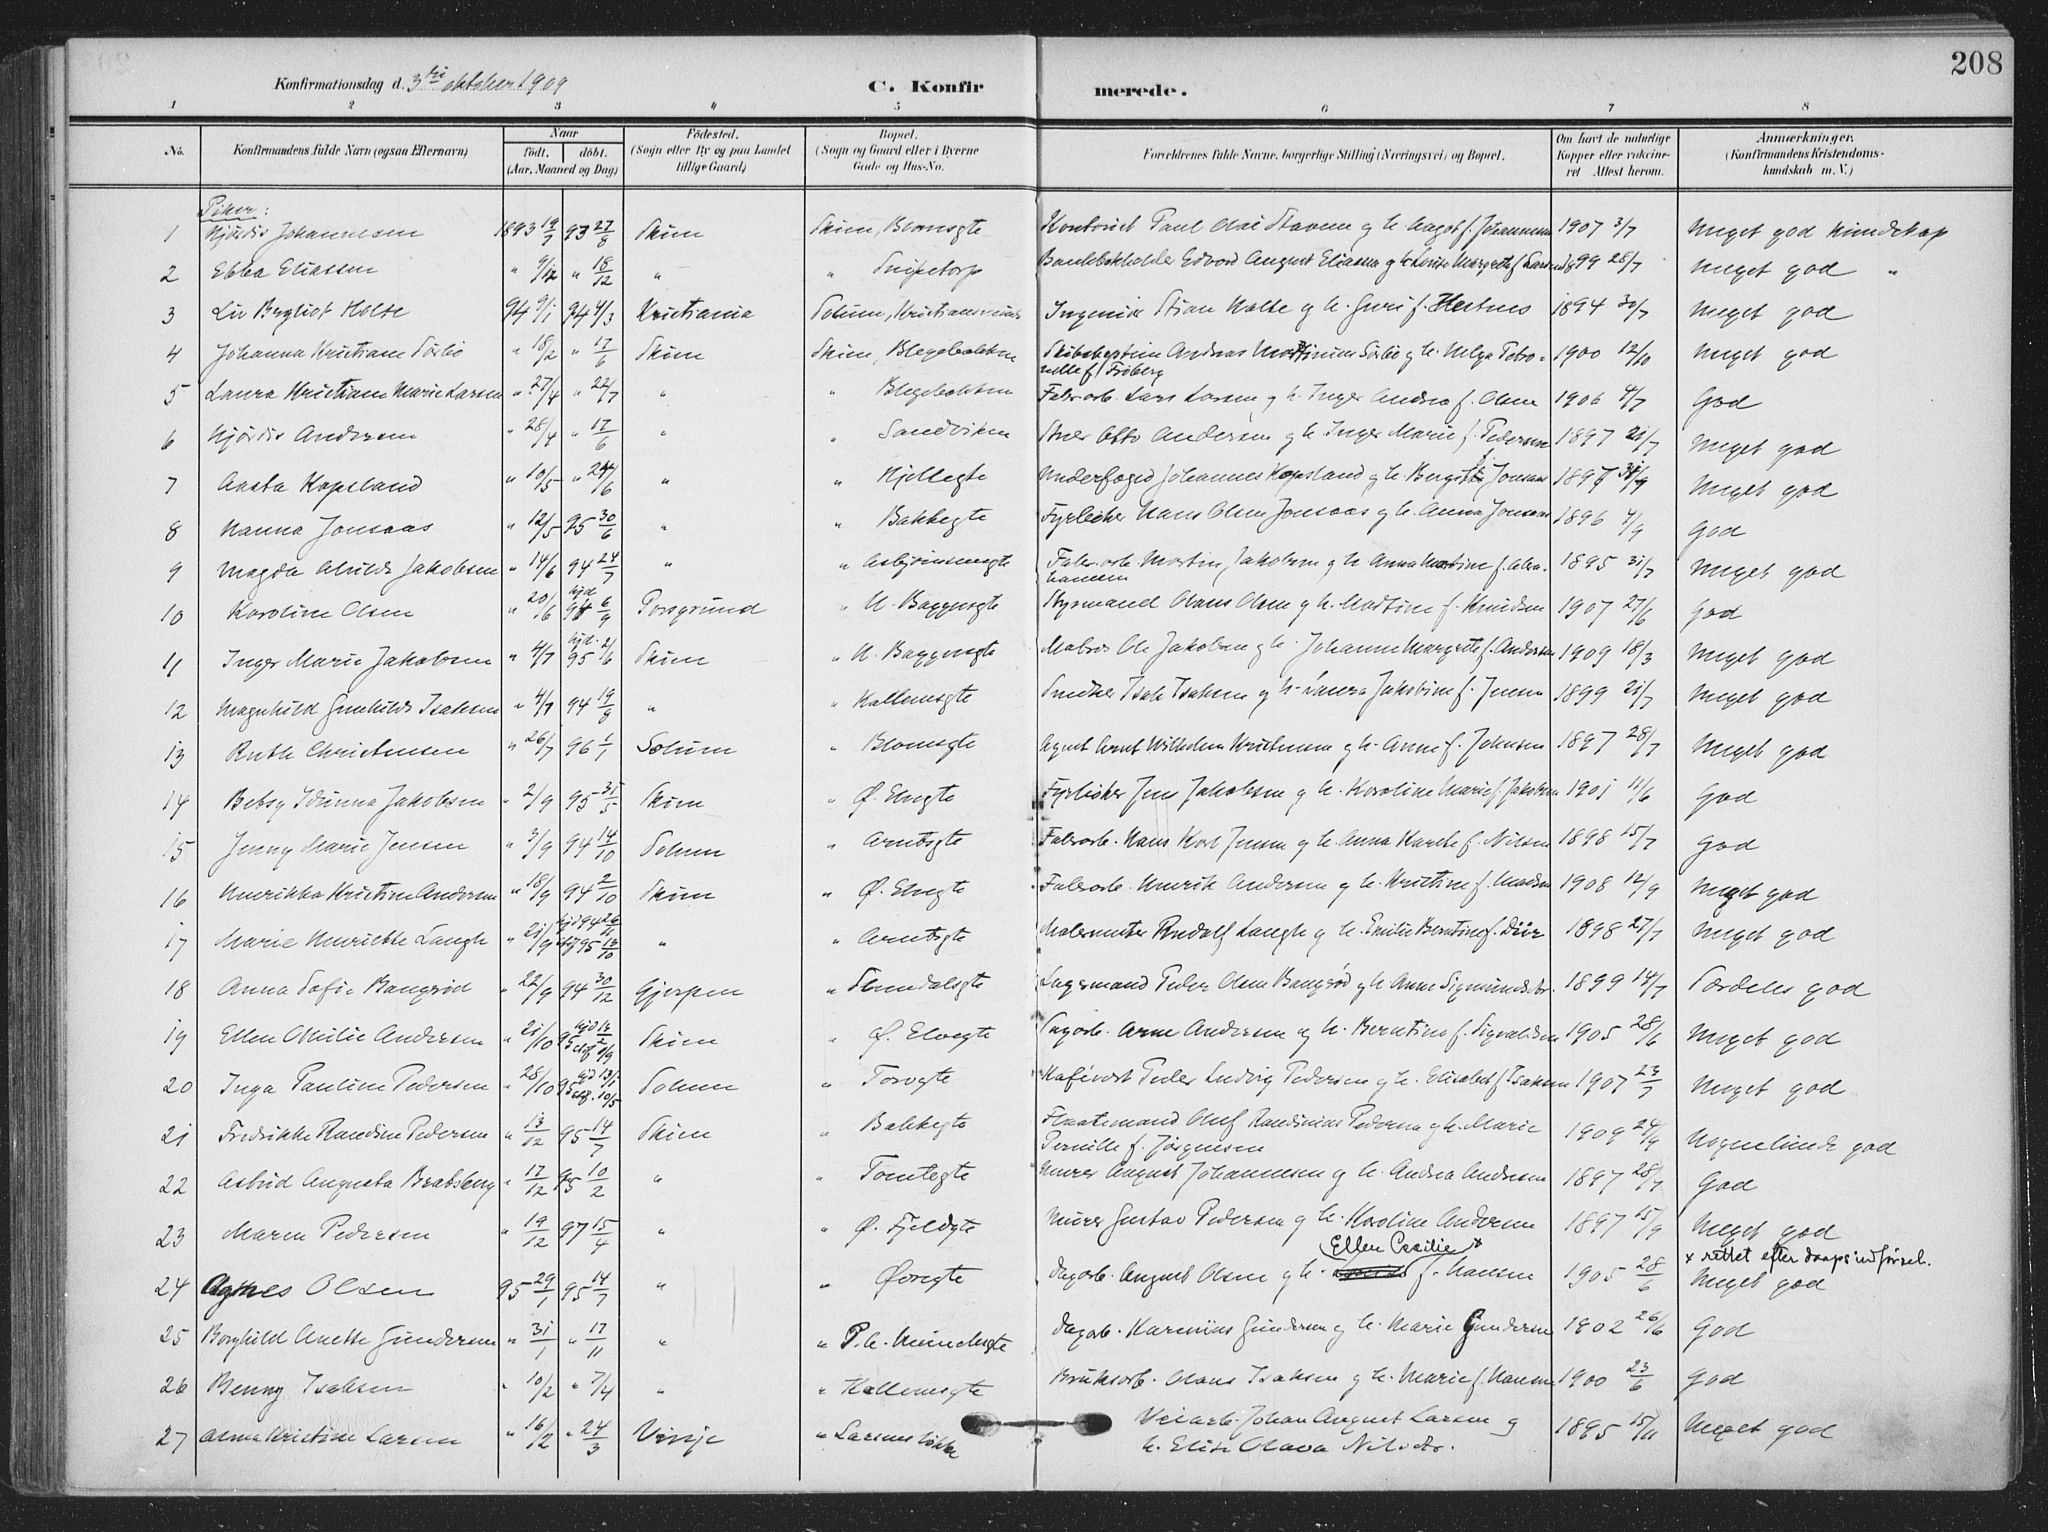 208
Konfirmationsdag d. 3die oktober 1909
C. Konfirmerede.
1 2 3 4 5 6 7 8
No. Konfirmandens fulde Navn (ogsaa Efternavn) Naar født. døbt. (Aar, Maaned og Dag) Fødested. (Sogn eller By og paa Landet tillige Gaard) Bopæl. (Sogn og Gaard eller i Byerne Gade og Hus-No. Forældrenes fulde Navne, borgerlige Stilling (Næringsvei) og Bopæl. Om havt de naturlige Kopper eller vakcineret Attest herom. Anmærkninger. (Konfirmandens Kristendomskundskab m. V.)
Piker:
1 Hjørdis Johannesen 1893 19/7 93 27/8 Skien Skien, Blomsgte Kontorist Paul Olai Stavem og h. Magot f. Johannesen 1907 3/7 Meget god kundskap
2 Ebba Eliassen " 9/12 " 18/12 " " Snipetorp Bankbokholder Edvard August Eliassen og h. Louise Margrethe f. Larsen 1899 28/7 Meget god "
3 Liv Bergliot Holte 94 9/1 94 4/3 Kristiania Solum, Ingeniør Stian Holte og h. Guri f. Hertnes 1894 30/7 Meget god
4 Johanna Kristiane Sørbø " 18/2 " 17/6 Skien Skien, Blegebakken Andreas Sørbø og h. Helga Petronille f. Frøberg 1900 12/10 Meget god
5 Laura Kristiane Marie Larsen " 27/4 " 22/7 " " Blegebakken Fabr.arb. Lars Larsen og h. Inger Andrea f. Olsen 1906 4/7 God
6 Hjørdis Andersen " 28/4 " 17/6 " " Sandviken Otto Andersen og h. Inger Marie f. Pedersen 1897 21/7 Meget god
7 Aasta Kopsland " 10/5 " 24/6 " " Hjellegte Underfoged Johannes Kopsland og h. Bergit f. Jonsaas 1897 Meget god
8 Hanna Jonsaas " 12/5 95 30/6 " " Bakkegte Fyrbøter Hans Olsen Jonsaas og h. Anna Jonsaas 1896 4/9 God
9 Magda Alvilde Jakobsen " 14/6 94 24/7 " " Asbjørnsensgte Fabr.arb. Martin Jakobsen og h. Anna Martine f. Abrahamsen 1895 31/7 Meget god
10 Karoline Olsen " 20/6 hjd 94 6/9 Porsgrund " N. Baggensgte Styrmand Olaus Olsen og h. Martine f. Knudsen 1907 27/6 God
11 Inger Marie Jakobsen " 4/7 hjd. 95 21/6 Skien " N. Baggensgte Matros Ole Jakobsen og h. Johanne Margrethe f. Andersen 1909 18/3 Meget god
12 Magnhild Gunhilde Isaksen " 4/7 94 19/8 " " Kallemsgte Smither Isak Isaksen og h. Laura Jakobine f. Jensen 1899 21/7 Meget god
13 Ruth Christensen " 26/7 96 1/1 Solum " Blomsgte Agent Arnt Wilhelm Kristensen og h. Anne f. Johnsen 1897 28/7 Meget god
14 Betsy Idunna Jakobsen " 2/9 95 31/5 Skien " Ø. Elvegte Fyrbøter Jens Jakobsen og h. Karoline Marie f. Jakobsen 1901 11/6 God
15 Jenny Marie Jensen " 3/9 94 14/10 Solum " Arntsgte Fabr.arb. Hans Karl Jensen og h. Anna Karethe f. Nilsen 1898 15/7 God
16 Henrikka Kristine Andersen " 18/9 94 2/10 Skien " Ø. Elvegte Fabr.arb. Henrik Andersen og h. Kristine f. Madsen 1908 12/9 Meget god
17 Marie Henriette Langh " 21/9 " " Arntsgte Malermester Rudolf Langh og h. Emilie Berntine f. 1898 27/7 Meget god
18 Anna Sofie Bangrød " 22/9 94 30/12 Gjerpen " Stendalsgte Lagermand Peder Olsen Bangrød og h. Anne Sigmundsdtr. 1899 14/7 Særdeles god
19 Ellen Otilie Andersen " 21/10 95 hjd 12/2 stf 1/9 Skien " Ø. Elvegte Sagarb. Arne Andersen og h. Berntine f. Sigvaldsen 1905 28/6 Meget god
20 Inga Pauline Pedersen " 28/10 95 hjd 13/1 stf. 10/5 Solum " Torvgte Kafevært Peder Ludvig Pedersen og h. Elisabet f. Isaksen 1907 23/7 Meget god
21 Fredrikke Randine Pedersen " 13/12 95 14/7 Skien " Bakkegte Flaatemand Oluf Randinius Pedersen og h. Marie Pernille f. Jørgensen 1909 24/9 Nogenlunde god
22 Astrid Augusta Bratsberg " 17/12 95 10/2 " " Tomtegte Murer August Johannesen og h. Andrea Andersen 1897 28/7 God
23 Maren Pedersen " 19/12 97 15/4 " " Ø. Fjeldgte Murer Gustav Pedersen og h. Karoline Andersen 1897 15/9 Meget god
24 Agnes Olsen 95 29/1 95 14/7 " " Øvregte Dagarb. August Olsen og h. Ellen Cecilie x f. Hansen 1905 28/6 x rettet efter daapsindførsel. Meget god
25 Borghild Anette Gundersen " 31/1 " 17/11 " " P. A. Munchsgte Dagarb. Karenius Gundersen og h. Marie Gundersen 1902 26/6 God
26 Benny Isaksen " 10/2 " 7/4 " " Kallemsgte Bruksarb. Olaus Isaksen og h. Marie f. Hansen 1900 23/6 God
27 Anna Kristine Larsen " 16/2 " 24/3 Vinje " Larsens løkke Veiarb. Johan August Larsen og h. Elise Olava Nilsdtr. 1895 15/11 Meget god